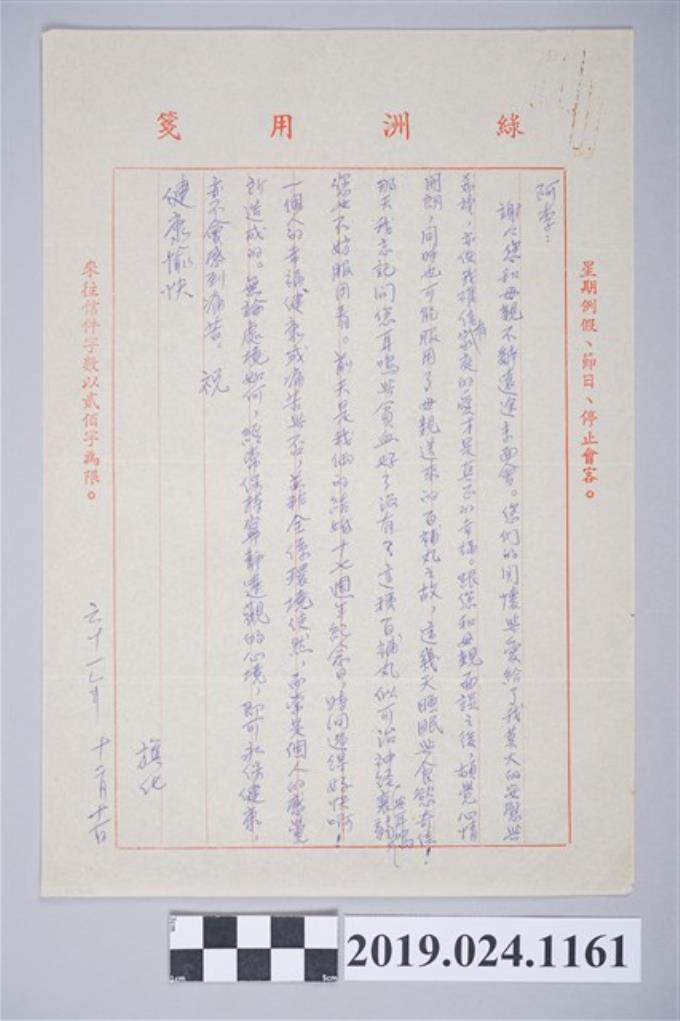 綠洲用箋
星期例假、節日、停止會客。
阿李:
謝々您和母親不斷遠途來面會。您們的関懷與愛給了我莫大的安慰與
希望,亦使我確信有家庭的愛才是真正的幸福。跟您和母親面談之後,頓覺心情
開朗,同時也可能服用了母親送來的百補丸之故,這幾天睡眠與食慾奇佳!
那天我忘記問您耳鳴與貧血好了沒有?這種百補丸似可治神経衰弱與耳鳴
您也不妨服用看。前天是我倆的結婚十七週年紀念日,時间過得好快啊!
一個人的幸福健康或痛苦與否,並非全係環境使然,而常是個人的感覺
所造成的。無論處境如何,経常保持寧靜達觀的心境,即可永保健康,
亦不會感到痛苦。 祝
健康愉快
振化
六十一年 十二月十一日
來往信件字數以貳佰字為限。
2019.024.1161
5cm